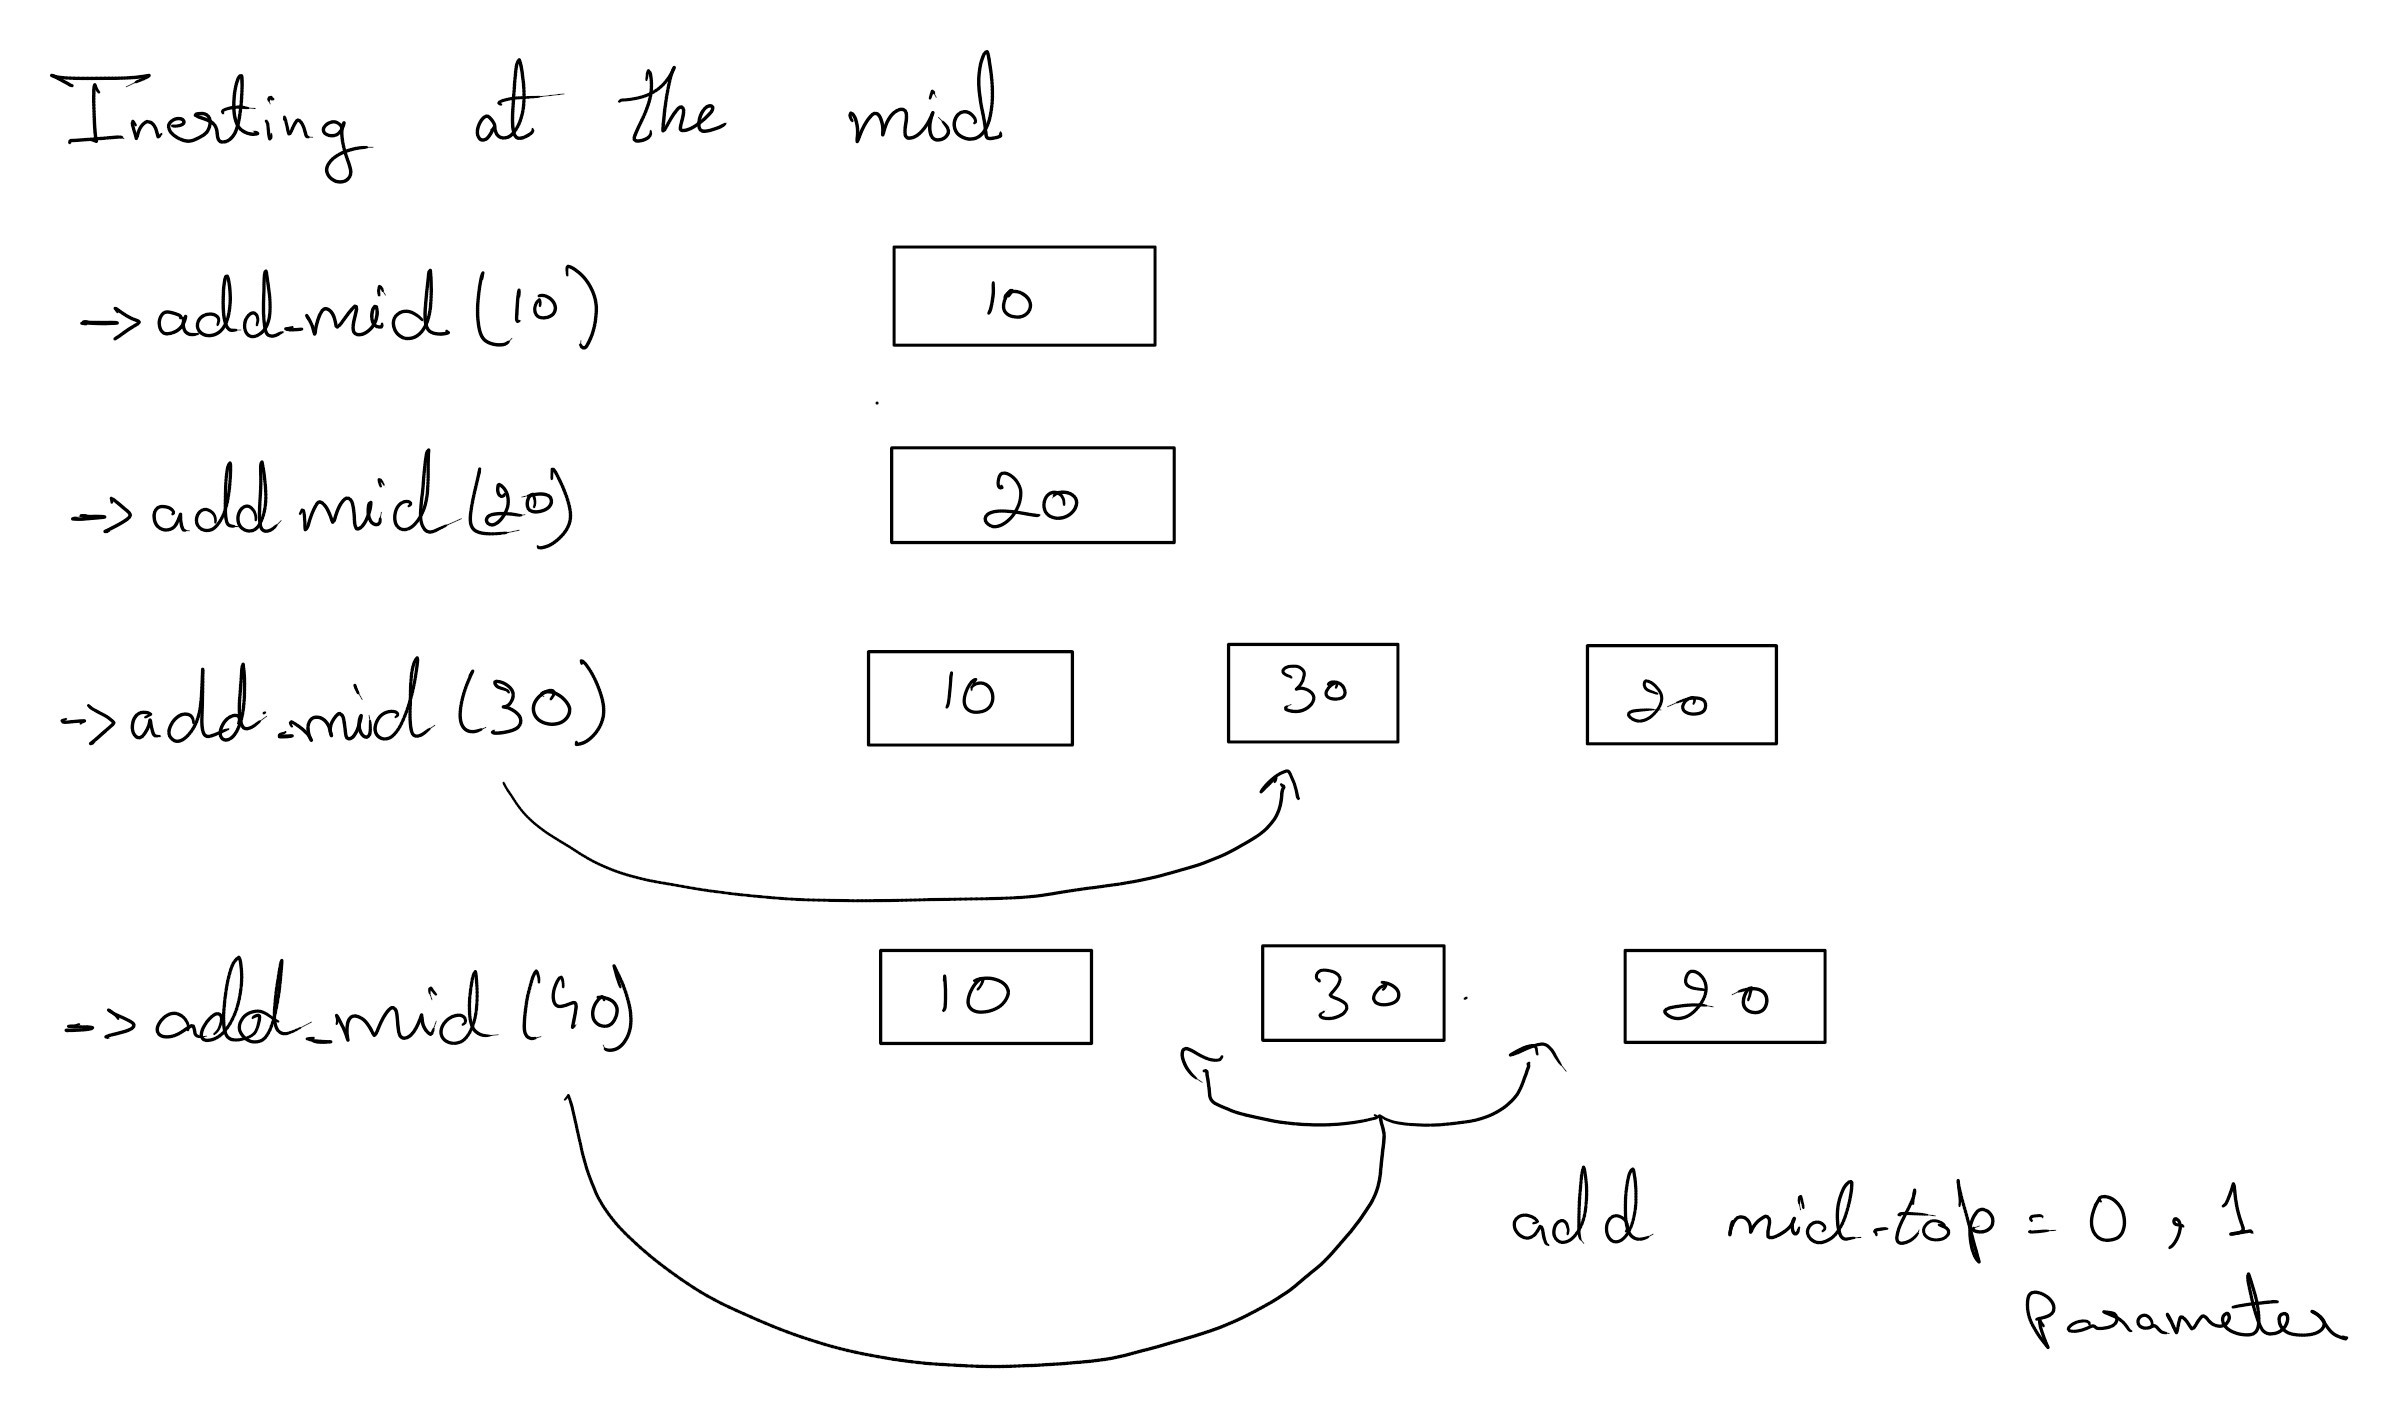 Inerting at the mid
→ add_mid (10) 10
→ add mid (20) 20
→ add_mid (30) 10 30 20
→ add_mid (40) 10 30 20
add mid-top = 0 , 1
Parameter